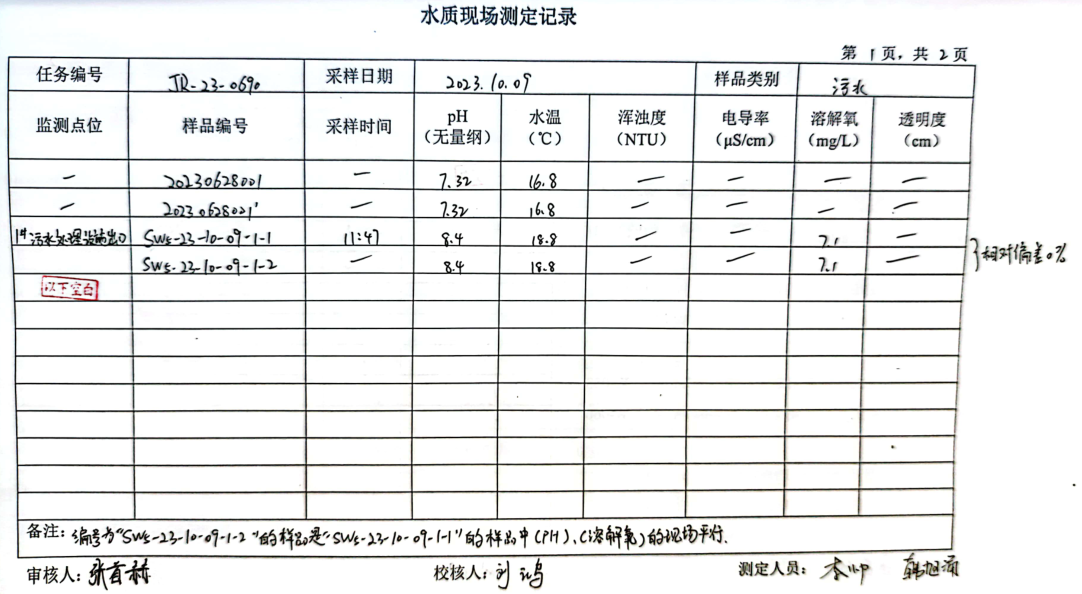 水质现场测定记录
第 1 页，共 2 页
任务编号 JR-23-0690 采样日期 2023.10.09 样品类别 污水
监测点位 样品编号 采样时间 pH（无量纲） 水温（℃） 浑浊度（NTU） 电导率（μS/cm） 溶解氧（mg/L） 透明度（cm）
— 20230628001 — 7.32 16.8 — — — —
— 20230628021' — 7.32 16.8 — — — —
1#污水处理设施出口 SW5-23-10-09-1-1 11:47 8.4 18.8 — — 7.1 —
SW5-23-10-09-1-2 8.4 18.8 — — 7.1 —
}相对偏差0%
以下空白
备注：编号为"SW5-23-10-09-1-2"的样品是"SW5-23-10-09-1-1"的样品中(PH)、(溶解氧)的现场平行.
审核人： 校核人：刘鸿 测定人员：